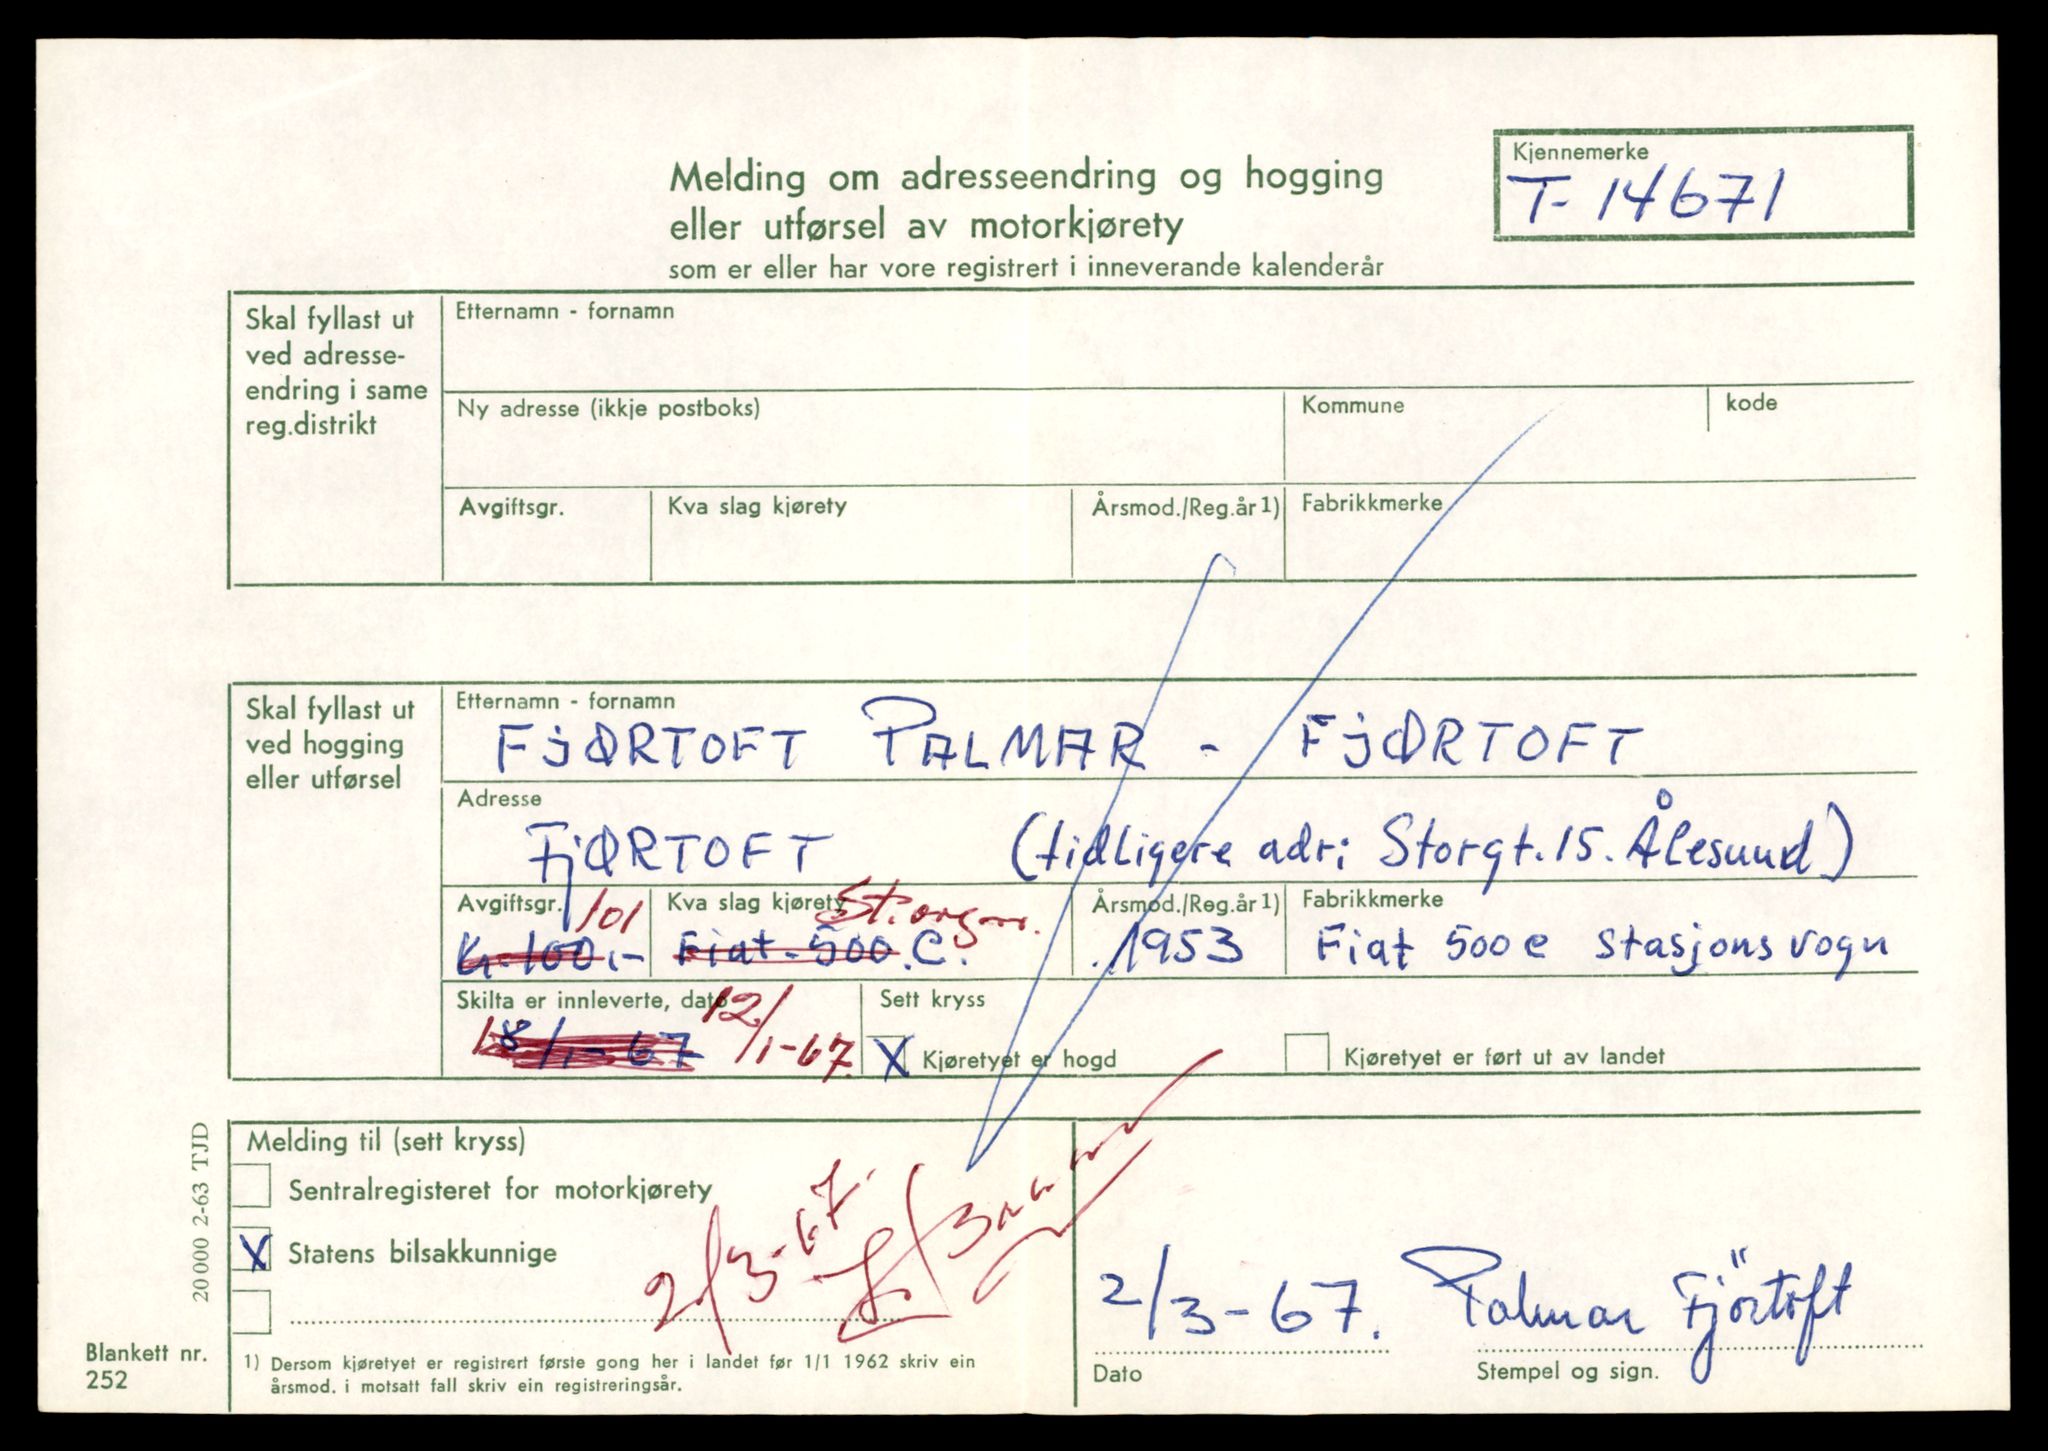 Melding om adresseendring og hogging
eller utførsel av motorkjørety
som er eller har vore registrert i inneverande kalenderår
Kjennemerke
T- 14671
Skal fyllast ut
ved adresse-
endring i same
reg.distrikt
Etternamn - fornamn
Ny adresse (ikkje postboks)
Kommune
kode
Avgiftsgr.
Kva slag kjørety
Årsmod./Reg.år 1)
Fabrikkmerke
Skal fyllast ut
ved hogging
eller utførsel
Etternamn - fornamn
FJØRTOFT PALMAR - FJØRTOFT
Adresse
FJØRTOFT (tidligere adr; Storgt. 15. Ålesund)
Avgiftsgr.
101
Kr. 100.-
Kva slag kjørety
Fiat - 500.C.
Årsmod./Reg.år 1)
1953
Fabrikkmerke
Fiat 500 c stasjonsvogn
Skilta er innleverte, dato
18/1-67
12/1-67.
Sett kryss
X Kjøretyet er hogd
Kjøretyet er ført ut av landet
Melding til (sett kryss)
Sentralregisteret for motorkjørety
X Statens bilsakkunnige
2/3-67.
2/3-67. Palmar Fjörtoft
Dato
Stempel og sign.
1) Dersom kjøretyet er registrert første gong her i landet før 1/1 1962 skriv ein
årsmod. i motsatt fall skriv ein registreringsår.
20 000 2-63 TJD
Blankett nr.
252